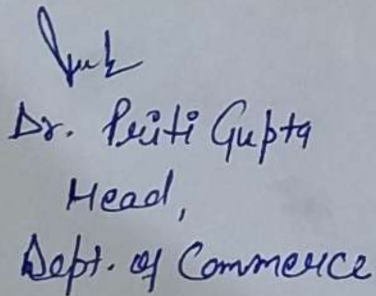 Dr. Priti Gupta
Head,
Dept. of Commerce